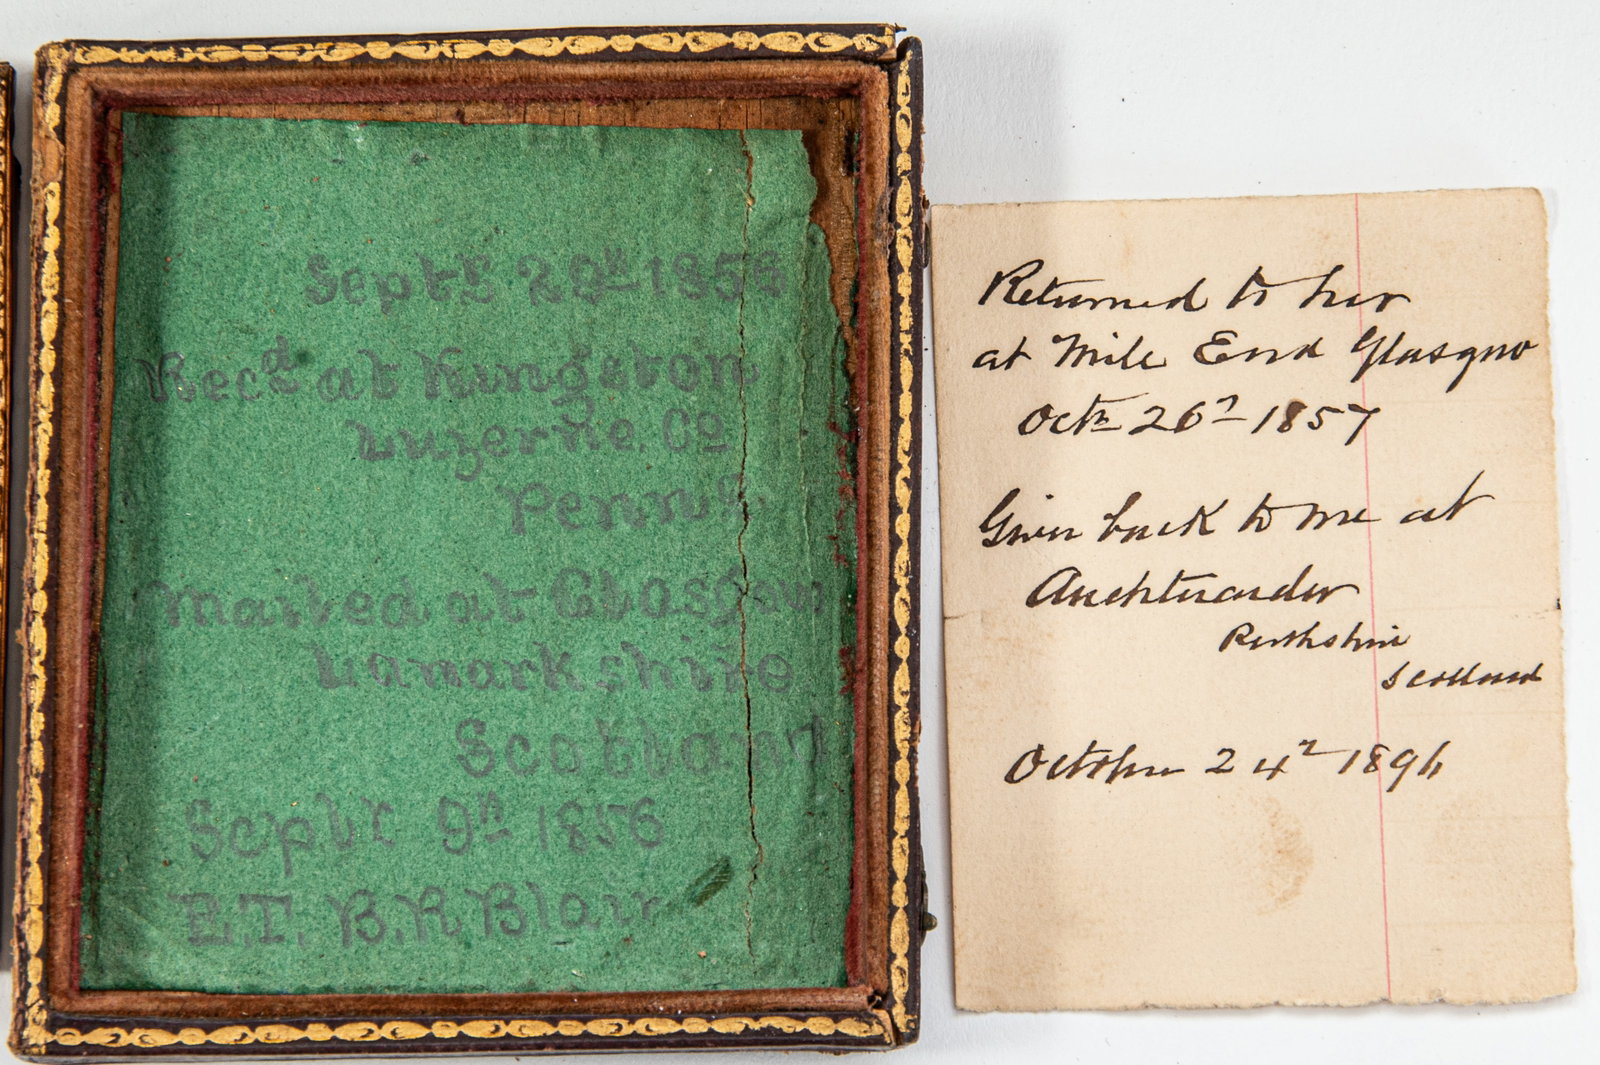 Septr 29th 1856
Recd at Kingston
Luzerne. Co
Penna.
Mailed at Glasgow
Lanarkshire
Scotland
Septr 9th 1856
E.T. B.R Blair
Returned to her
at Mile End Glasgow
Octr 26th 1857
Given back to me at
Auchterarder
Perthshire
Scotland
October 24th 1896